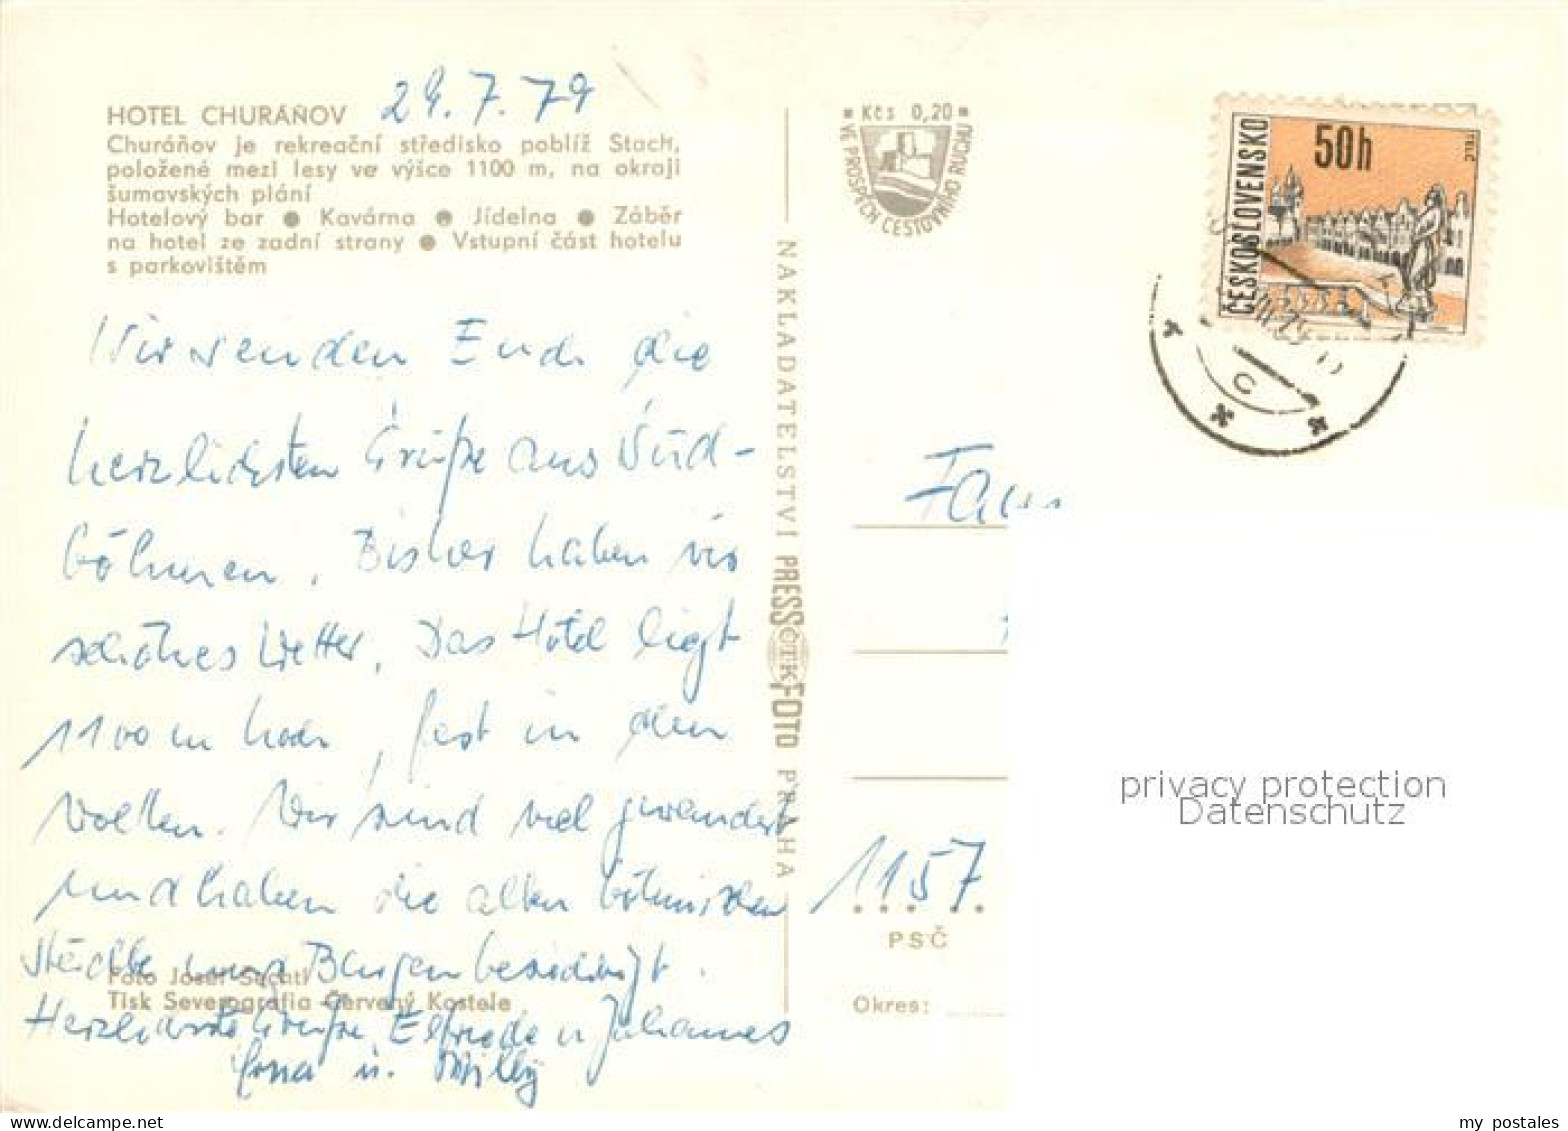 HOTEL CHURÁŇOV 29.7.79
Churáňov je rekreační středisko poblíž Stach,
položené mezi lesy ve výšce 1100 m, na okraji
šumavských plání
Hotelový bar ● Kavárna ● Jídelna ● Záběr
na hotel ze zadní strany ● Vstupní část hotelu
s parkovištěm
Wir senden Euch die
herzlichsten Grüße aus Süd-
böhmen. Bisher haben wir
schönes Wetter. Das Hotel liegt
1100 m hoch, fast in den
Wolken. Wir sind viel gewandert
und haben die alten böhmischen
Städte und Burgen besichtigt.
Foto Josef Sechtl
Tisk Severografia Červený Kostelec
Herzlichste Grüße, Elfriede u Johannes
u. Willy
NAKLADATELSTVÍ PRESSFOTO PRAHA
ČTK
Kčs 0,20
VE PROSPĚCH CESTOVNÍHO RUCHU
ČESKOSLOVENSKO
50h
TELČ
Fam
1157
PSČ
Okres:
privacy protection
Datenschutz
my postales